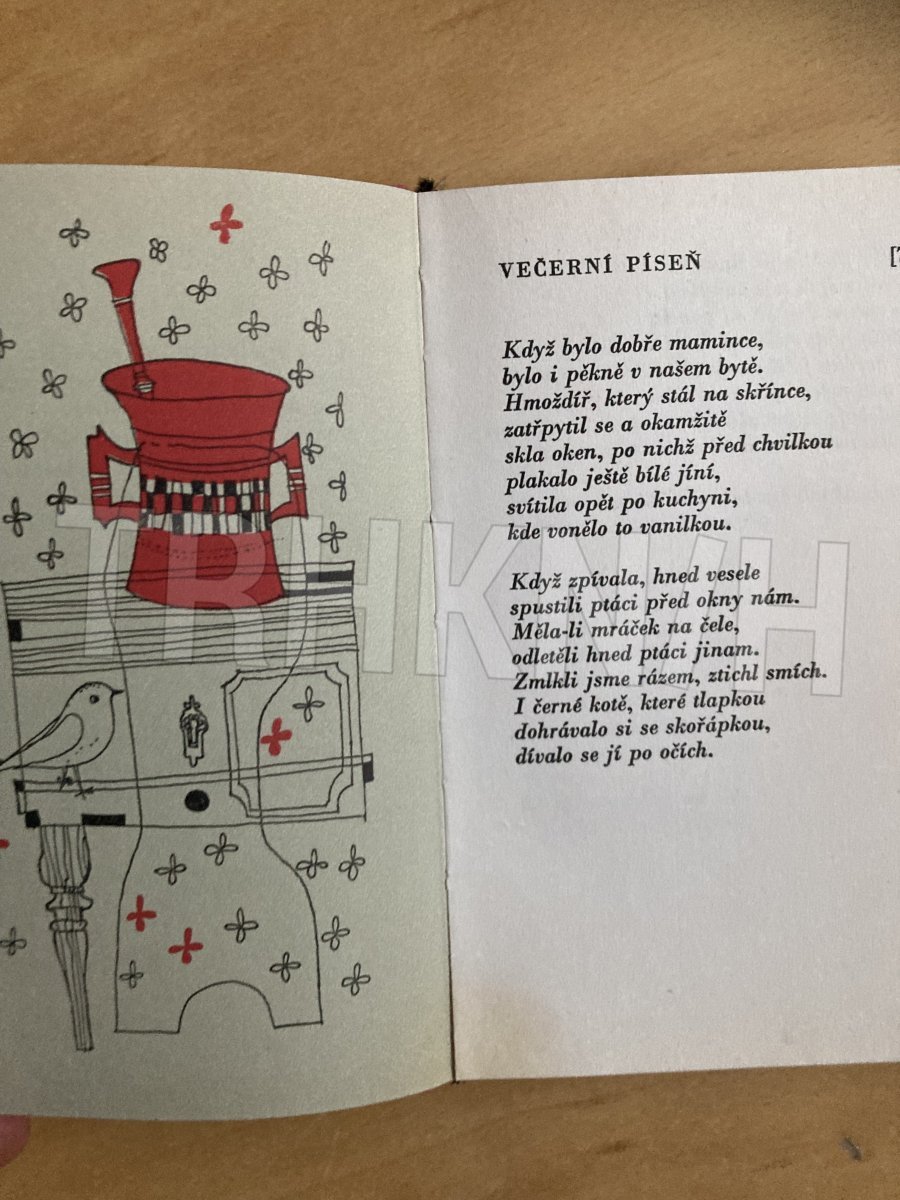 VEČERNÍ PÍSEŇ
Když bylo dobře mamince,
bylo i pěkně v našem bytě.
Hmoždíř, který stál na skřínce,
zatřpytil se a okamžitě
skla oken, po nichž před chvilkou
plakalo ještě bílé jíní,
svítila opět po kuchyni,
kde vonělo to vanilkou.
Když zpívala, hned vesele
spustili ptáci před okny nám.
Měla-li mráček na čele,
odletěli hned ptáci jinam.
Zmlkli jsme rázem, ztichl smích.
I černé kotě, které tlapkou
dohrávalo si se skořápkou,
dívalo se jí po očích.
TRHKNIH